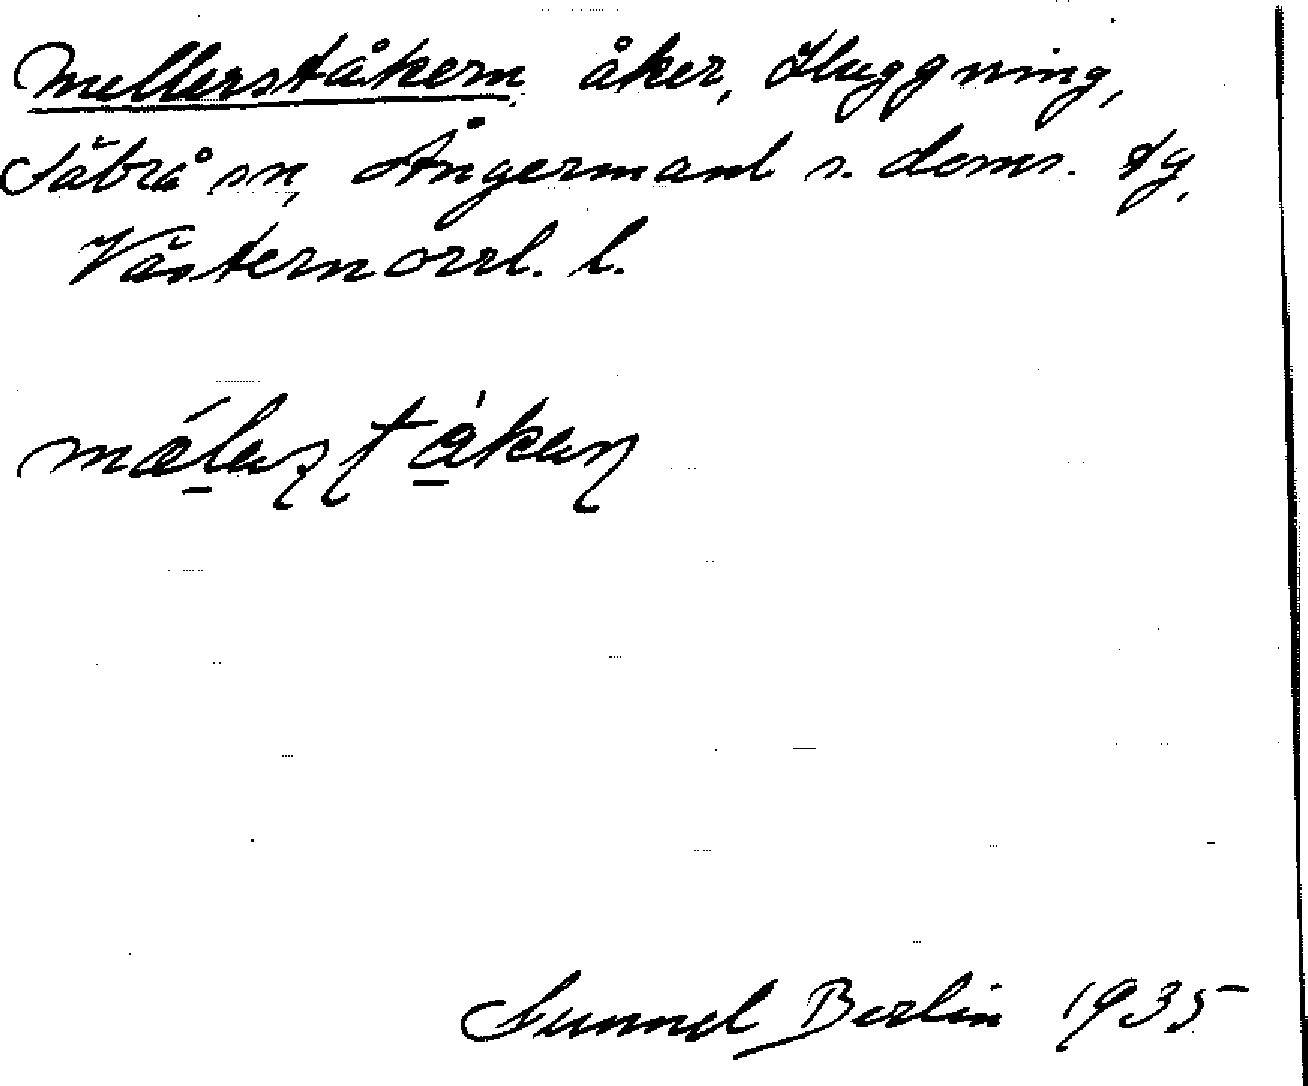 Mellerståkern, åker, Huggning,
Säbrå sn, Ångermanl s. doms. tg,
Västernorrl. l.
Gunnel Berlin 1935